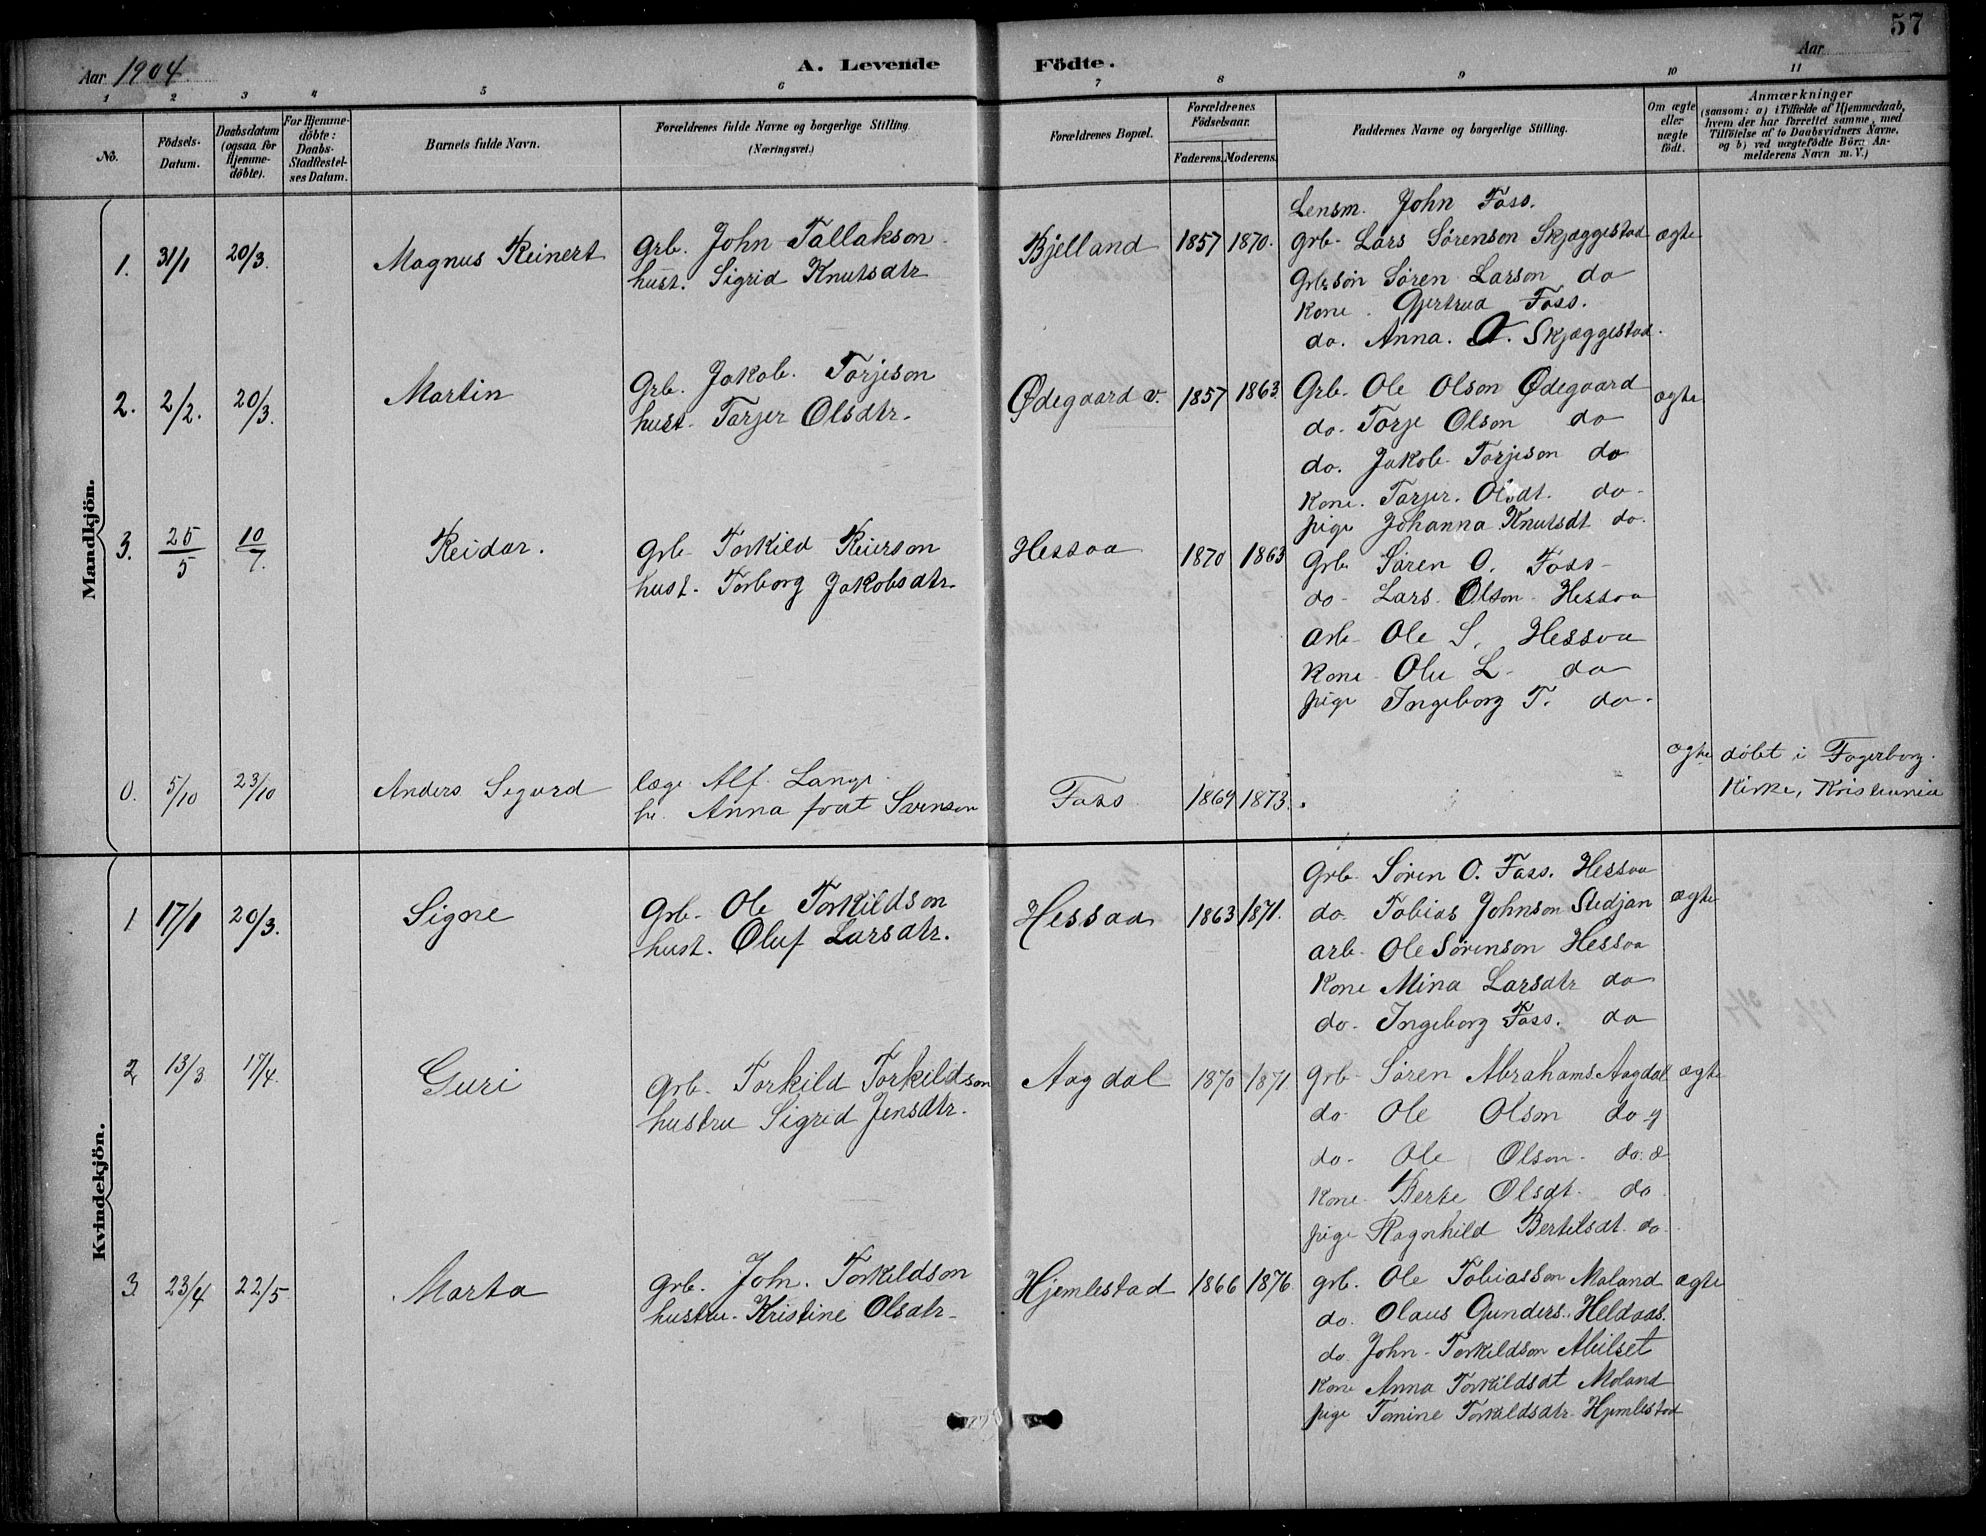 57
Aar 1904.
A. Levende Födte.
Aar
1 2 3 4 5 6 7 8 9 10 11
No.
Födsels-
Datum.
Daabsdatum
(ogsaa for
Hjemme-
döbte).
For Hjemme-
döbte:
Daabs-
Stadfestel-
ses Datum.
Barnets fulde Navn.
Forældrenes fulde Navne og borgerlige Stilling
(Næringsvei.)
Forældrenes Bopæl.
Forældrenes
Födselsaar.
Faderens. Moderens.
Faddernes Navne og borgerlige Stilling.
Om ægte
eller
uægte
födt.
Anmærkninger
(saasom: a) i Tilfælde af Hjemmedaab,
hvem der har forrettet samme, med
Tilföielse af to Daabsvidners Navne,
og b) ved uægtefödte Börn An-
melderens Navn m. V.)
Mandkjön.
1. 31/1 20/3. Magnus Reinert
Grb. John Tallakson
hust. Sigrid Knutsdtr
Bjelland 1857 1870.
Lensm. John Foss.
Grb. Lars Sørenson Skjæggestad
Grbsøn Søren Larson do
Kone. Gjertrud Foss.
do. Anna. O. Skjæggestad.
ægte
2. 2/2. 20/3. Martin
Grb. Jakob. Torjison
hust. Torjer Olsdtr.
Ødegaard v. 1857 1863.
Grb. Ole Olson Ødegaard
do. Torje Olson do
do. Jakob Torjison do
Kone. Torjer. Olsdt. do.
pige Johanna Knutsdt do.
ægte
3. 25/5 10/7. Reidar.
Grb Torkild Reierson
hust. Torborg Jakobsdtr.
Hessaa 1870 1863
Grb Søren O. Foss
do Lars Olson Hessaa
arb Ole S. Hessaa
Kone Olu L. do
pige Ingeborg T. do.
0. 5/10 23/10 Anders Sigurd
læge Alf Lange
h. Anna født Sørenson
Foss 1869 1873.
ægte
døbt i Fagerborg
Kirke, Kristiania
Kvindekjön.
1 17/1 20/3. Signe
Grb. Ole Torkildson
hust. Oluf Larsdtr.
Hessaa 1863 1871.
Grb Søren O. Foss. Hessaa
do. Tobias Johnson Stedjan
arb. Ole Sørenson Hessaa
Kone Mina Larsdtr do
do. Ingeborg Foss. do
ægte
2 13/3 17/4. Guri
Grb. Torkild Torkildson
hustru Sigrid Jensdtr.
Aagdal 1870 1871
Grb Søren Abrahams. Aagdal
do Ole Olson do y
do. Ole Olson. do. æ
Kone Berte Olsdt. do
pige Ragnhild Bertelsdt. do
ægte
3. 23/4 22/5 Marta
Grb. John. Torkildson
hustru. Kristine Olsdtr.
Hjemlestad 1866 1876.
grb. Ole Tobiasson Moland
do. Olaus Gunders. Heldaas.
do John Torkildson Meilset
Kone Anna Torkildsdt Moland
pige Tomine Torkildsdtr Hjemlestad
ægte